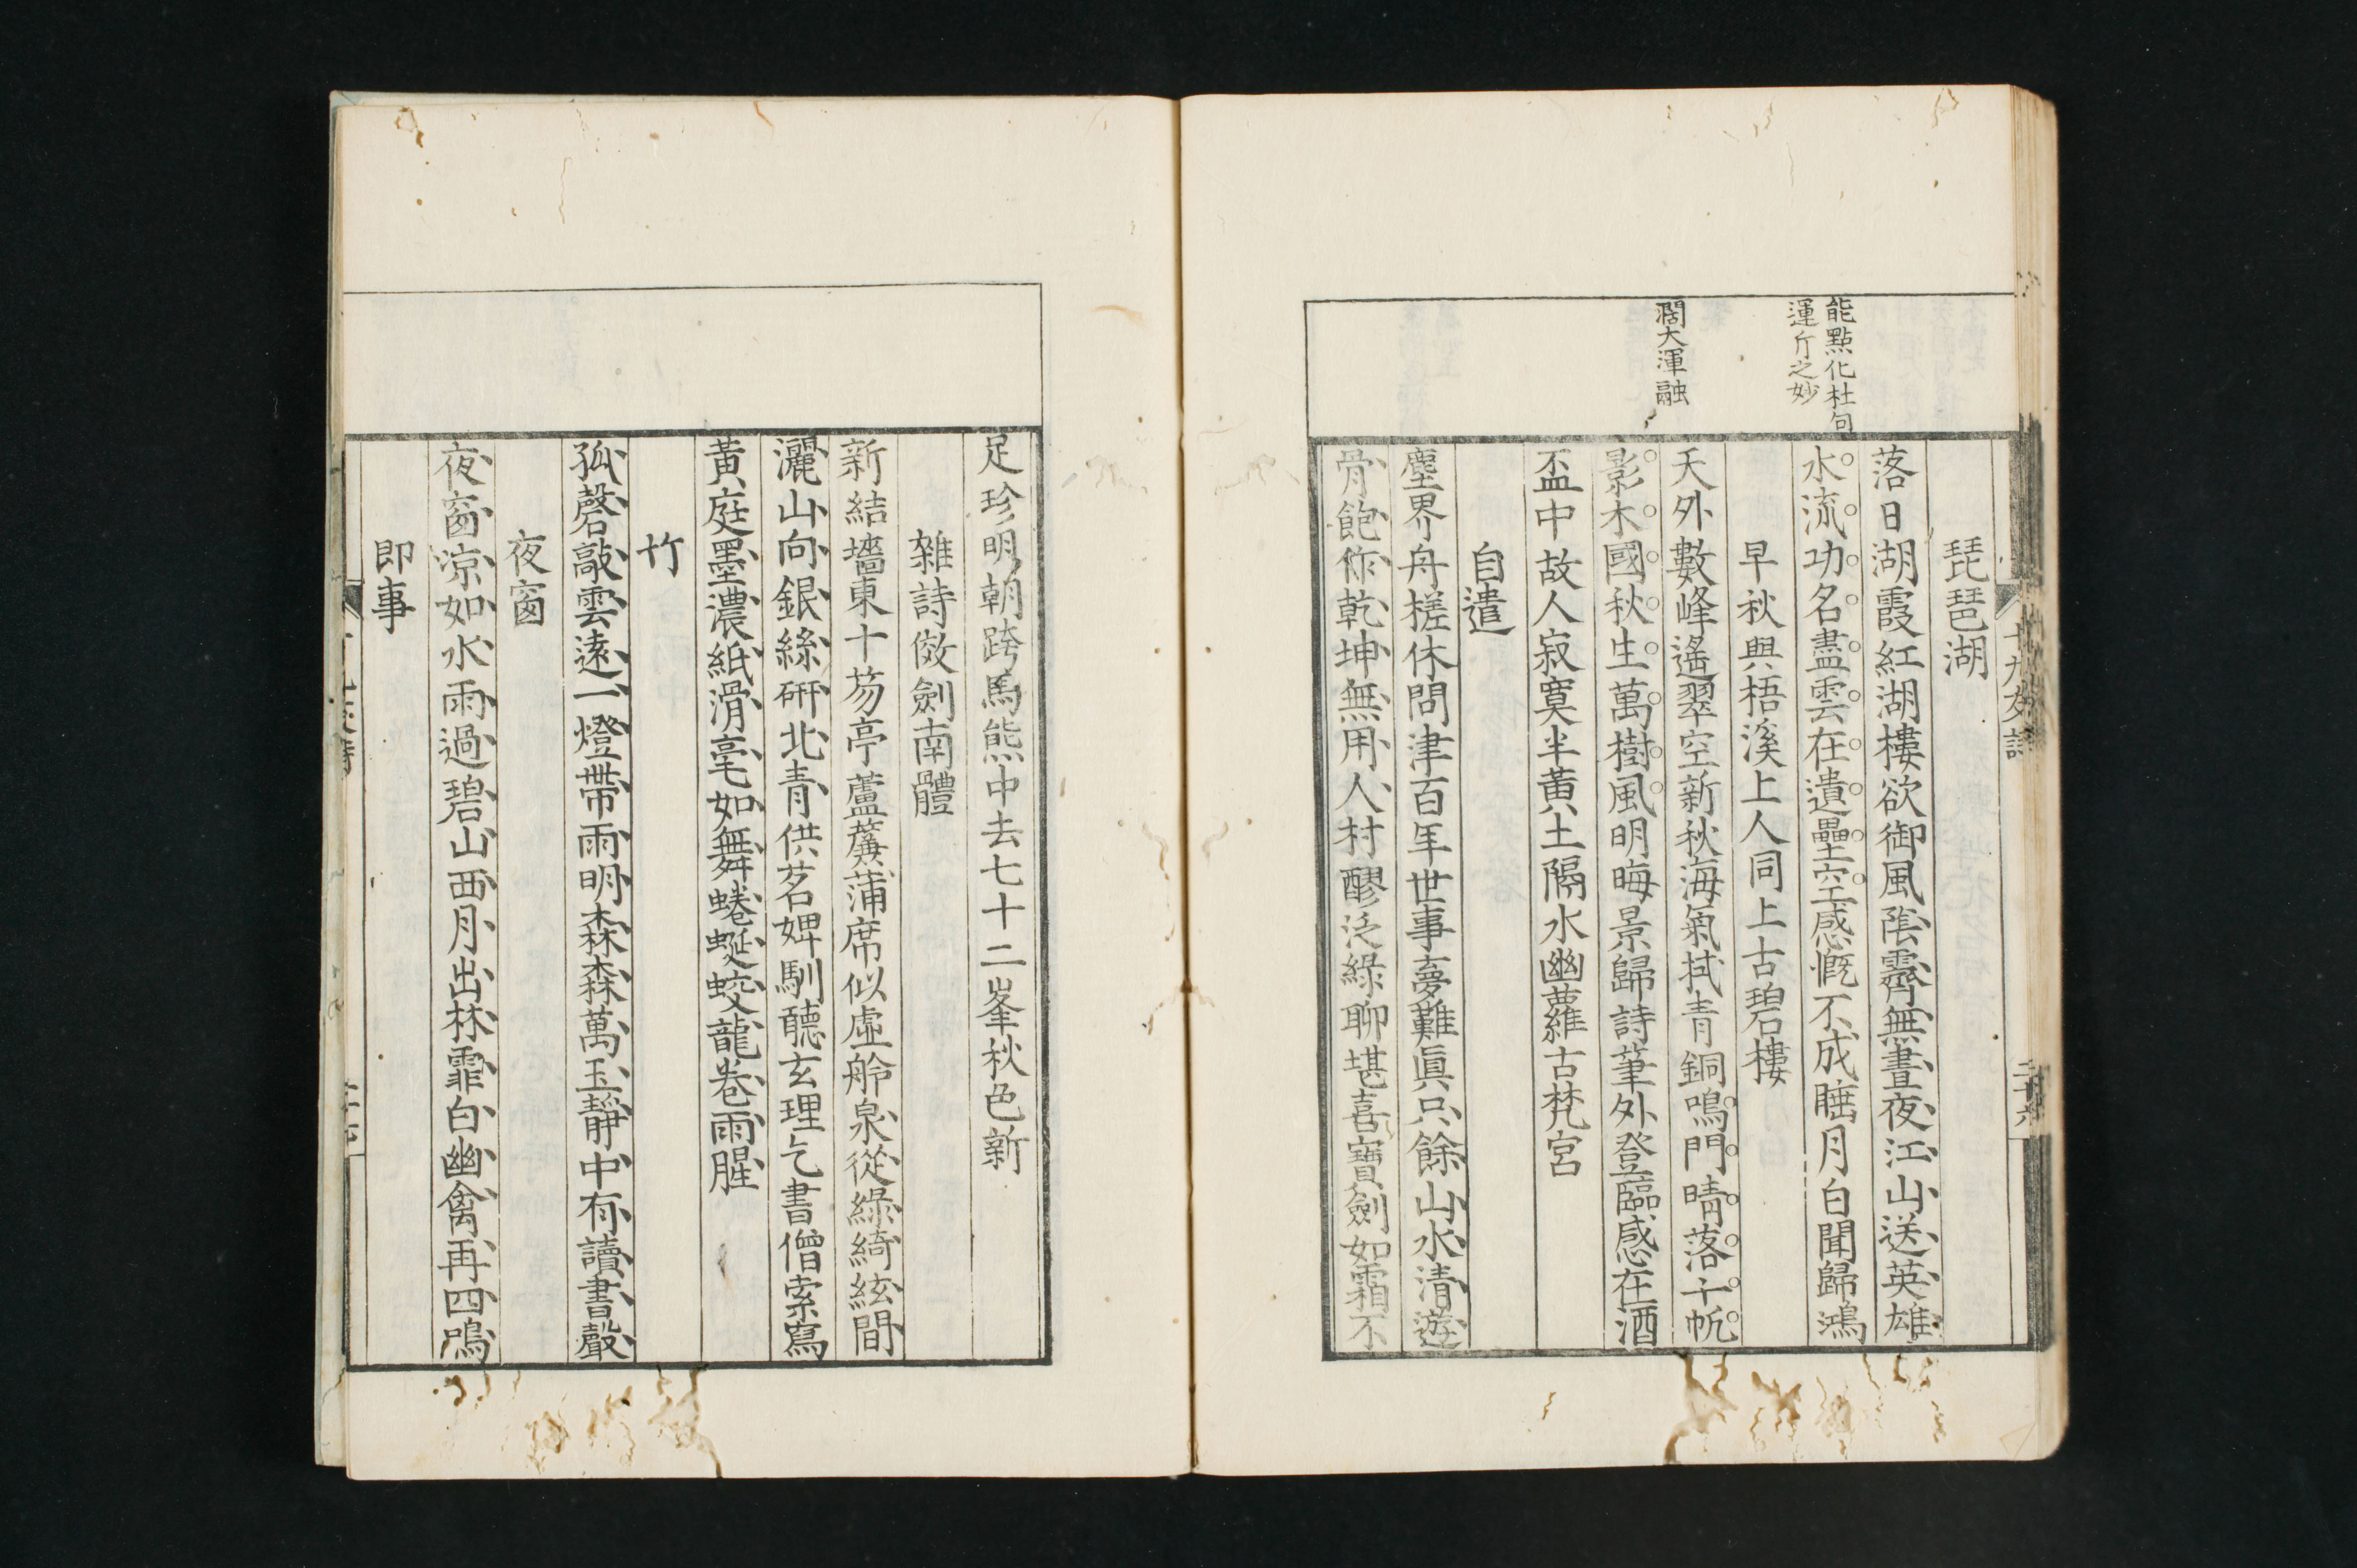 能點化杜句
運斤之妙
濶大渾融
琵琶湖
落日湖霞紅湖樓欲御風陰霽無晝夜江山送英雄
水流功名盡雲在遺壘空感慨不成睡月白聞歸鴻
早秋與梧溪上人同上古碧樓
天外數峰遙翠空新秋海氣拭青銅鳴門晴落千帆
影木國秋生萬樹風明晦景歸詩筆外登臨感在酒
盃中故人寂寞半黃土隔水幽蘿古梵宮
自遣
塵界舟槎休問津百年世事夢難眞只餘山水清遊
骨飽作乾坤無用人村醪泛綠聊堪喜寶劍如霜不
足珍明朝跨馬熊中去七十二峯秋色新
雜詩傚劍南體
新結墻東十笏亭蘆簾蒲席似虛舲泉從綠綺絃間
灑山向銀絲硏北青供茗婢馴聽玄理乞書僧索寫
黃庭墨濃紙滑毫如舞蜷蜒蛟龍卷雨腥
竹
孤磬敲雲遠一燈帶雨明森森萬玉靜中有讀書聲
夜窗
夜窗凉如水雨過碧山西月出林霏白幽禽再四鳴
即事